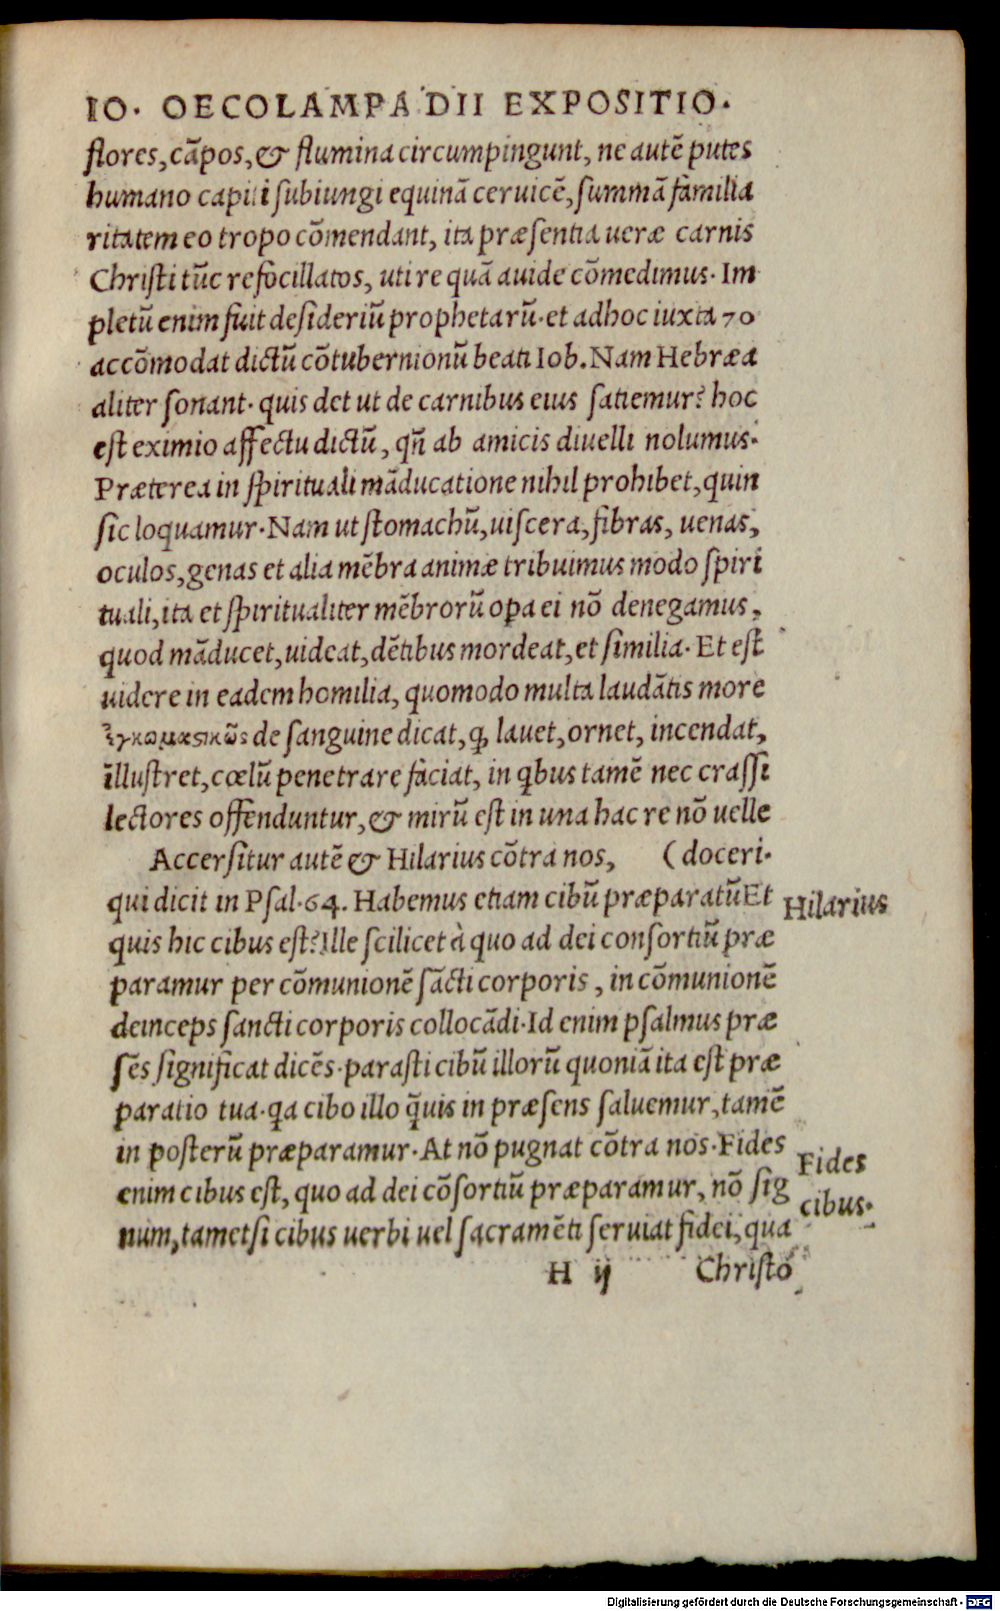 IO. OECOLAMPADII EXPOSITIO.
flores, cãpos, & flumina circumpingunt, ne autẽ putes
humano capiti subiungi equinã ceruicẽ, summã familia
ritatem eo tropo cõmendant, ita præsentia ueræ carnis
Christi tũc refocillatos, uti re quã auide cõmedimus. Im
pletũ enim fuit desideriũ prophetarũ. et adhoc iuxta 70
accõmodat dictũ cõtubernionũ beati Iob. Nam Hebræa
aliter sonant. quis det ut de carnibus eius satiemur? hoc
est eximio affectu dictũ, qñ ab amicis diuelli nolumus.
Præterea in spirituali mãducatione nihil prohibet, quin
sic loquamur. Nam ut stomachũ, uiscera, fibras, uenas,
oculos, genas et alia mẽbra animæ tribuimus modo spiri
tuali, ita et spiritualiter mẽbrorũ opa ei nõ denegamus,
quod mãducet, uideat, dẽtibus mordeat, et similia. Et est
uidere in eadem homilia, quomodo multa laudãtis more
ἐγκωμαςικῶς de sanguine dicat, ꝙ lauet, ornet, incendat,
illustret, cœlũ penetrare faciat, in qbus tamẽ nec crassi
lectores offenduntur, & mirũ est in una hac re nõ uelle
Accersitur autẽ & Hilarius cõtra nos, (doceri.
qui dicit in Psal. 64. Habemus etiam cibũ præparatũ Et
Hilarius
quis hic cibus est? Ille scilicet à quo ad dei consortiũ præ
paramur per cõmunionẽ sãcti corporis, in cõmunionẽ
deinceps sancti corporis collocãdi. Id enim psalmus præ
sẽs significat dicẽs. parasti cibũ illorũ quoniã ita est præ
paratio tua. qa cibo illo q̃uis in præsens saluemur, tamẽ
in posterũ præparamur. At nõ pugnat cõtra nos. Fides
Fides
enim cibus est, quo ad dei cõsortiũ præparamur, nõ sig
cibus.
num, tametsi cibus uerbi uel sacramẽti seruiat fidei, qua
H ij Christo
Digitalisierung gefördert durch die Deutsche Forschungsgemeinschaft - DFG